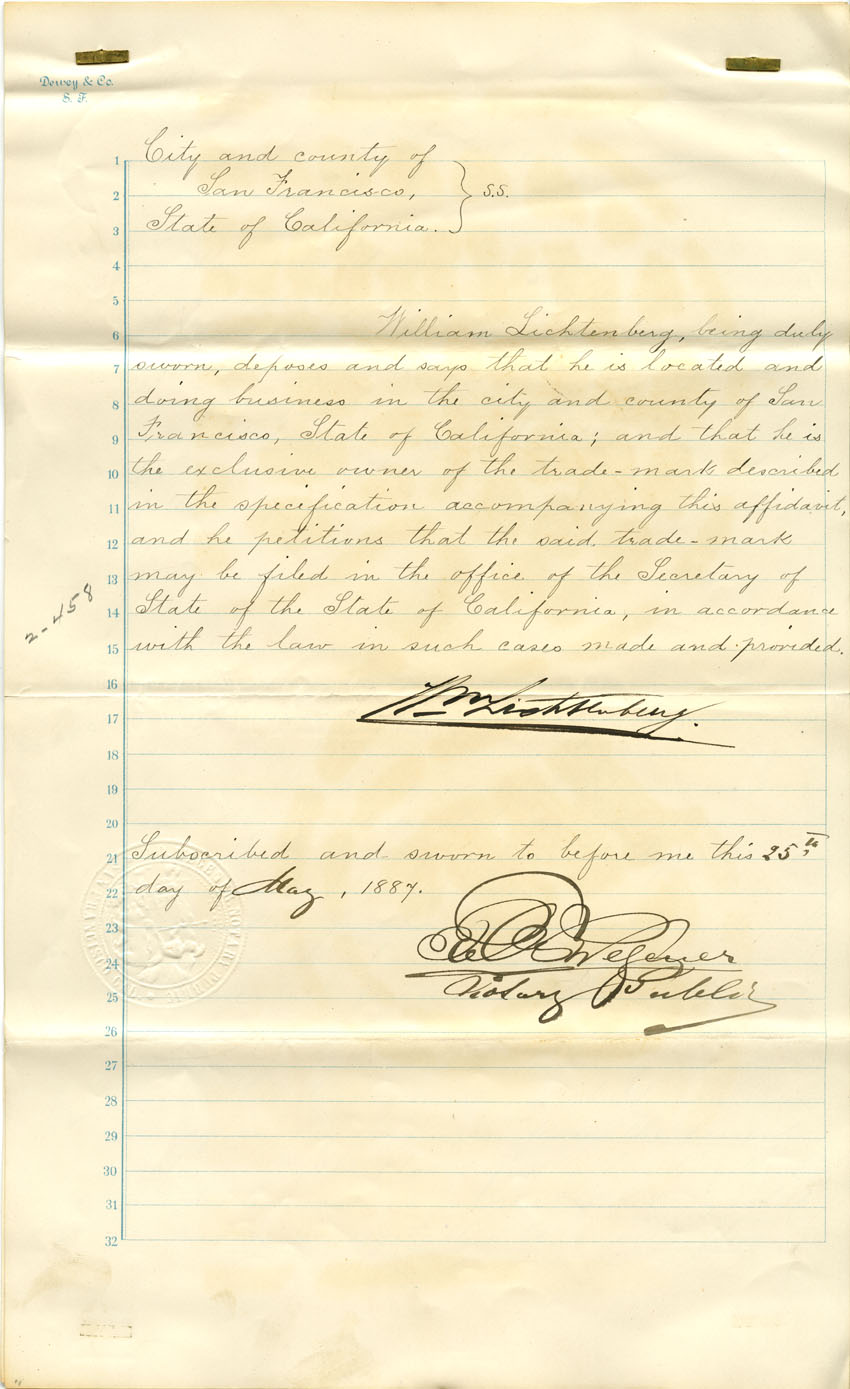 Dewey & Co.
S. F.
1 City and county of
2 San Francisco, } S.S.
3 State of California.
4
5
6 William Lichtenberg, being duly
7 sworn, deposes and says that he is located and
8 doing business in the city and county of San
9 Francisco, State of California; and that he is
10 the exclusive owner of the trade-mark described
11 in the specification accompanying this affidavit,
12 and he petitions that the said trade-mark
13 may be filed in the office of the Secretary of
14 State of the State of California, in accordance
15 with the law in such cases made and provided.
2-458
16
17 Wm Lichtenberg.
18
19
20
21 Subscribed and sworn to before me this 25th,
22 day of May, 1887.
23
24 Wegener
25 Notary Public
26
27
28
29
30
31
32